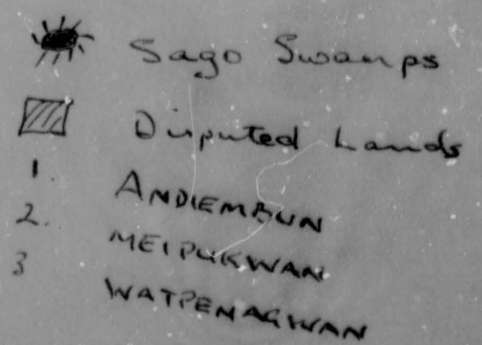 Sago Swamps
Disputed Lands
1. ANDIEMBUN
2. MEIPUKWAN
3 WATPENAGWAN